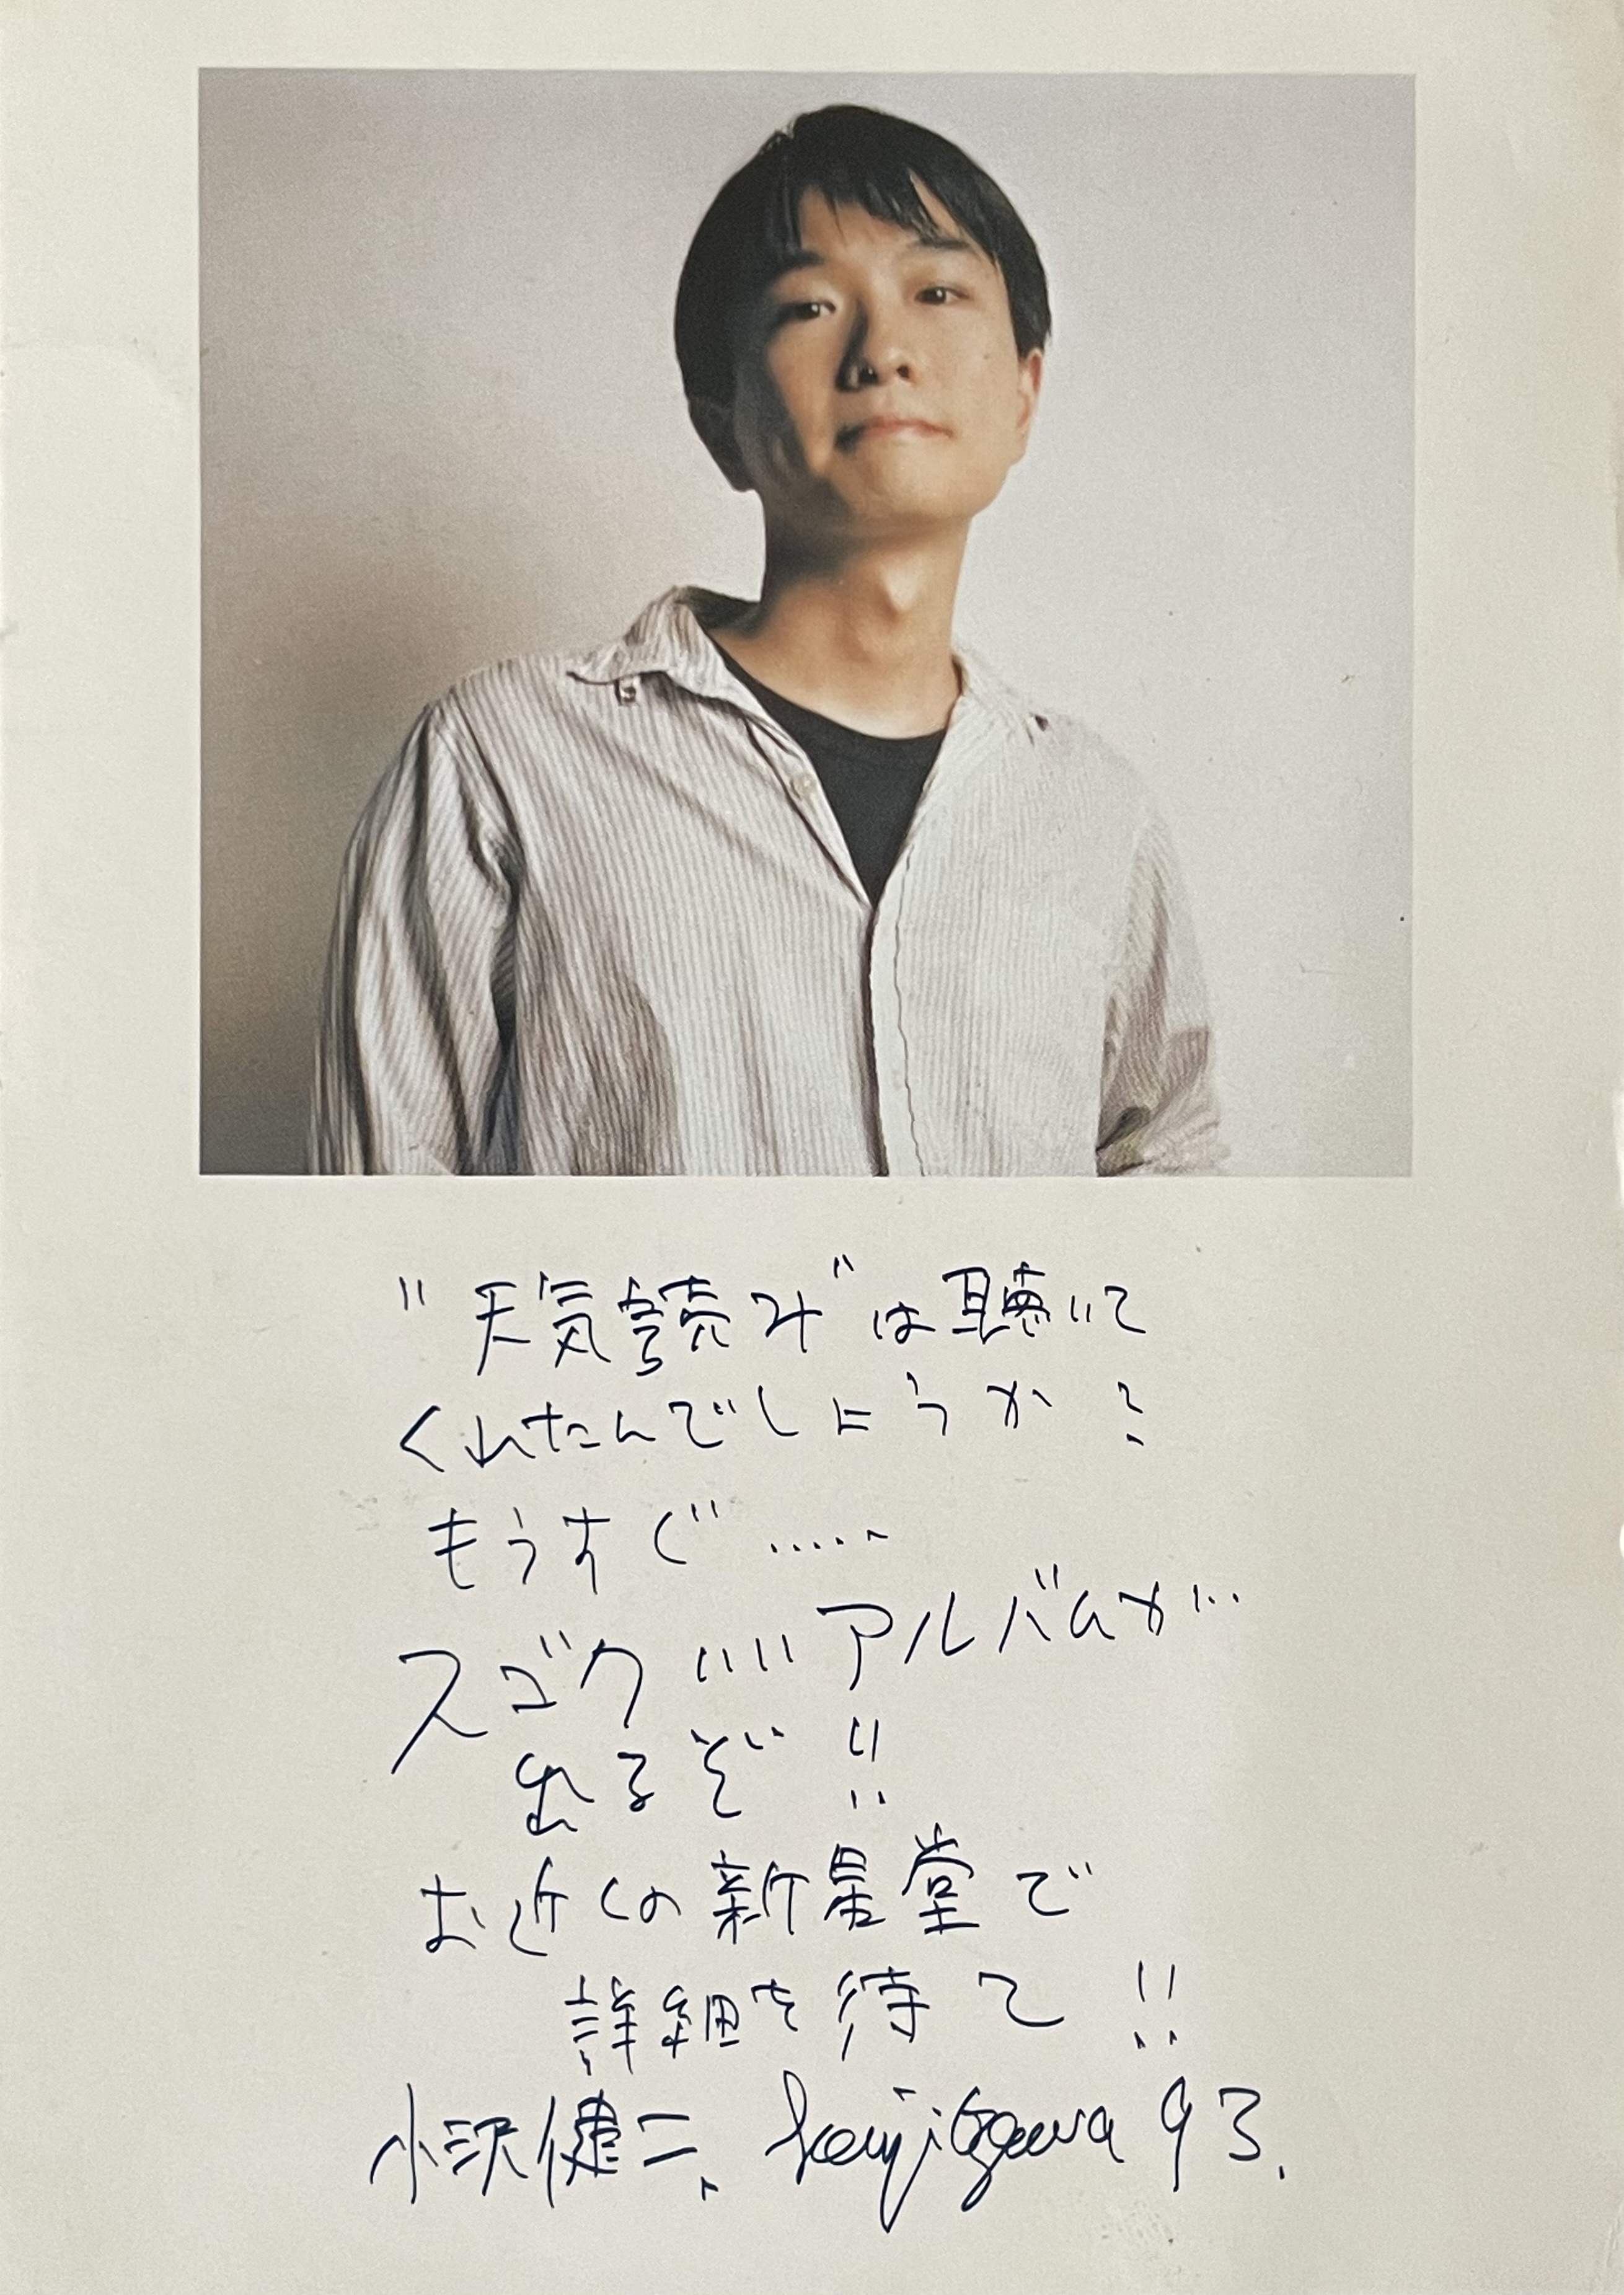 "天気読み"は聴いて
くれたんでしょうか?
もうすぐ……
スゴクいいアルバムが…
出るぞ!!
お近くの新星堂で
詳細を待て!!
小沢健二、kenjiozawa 93.